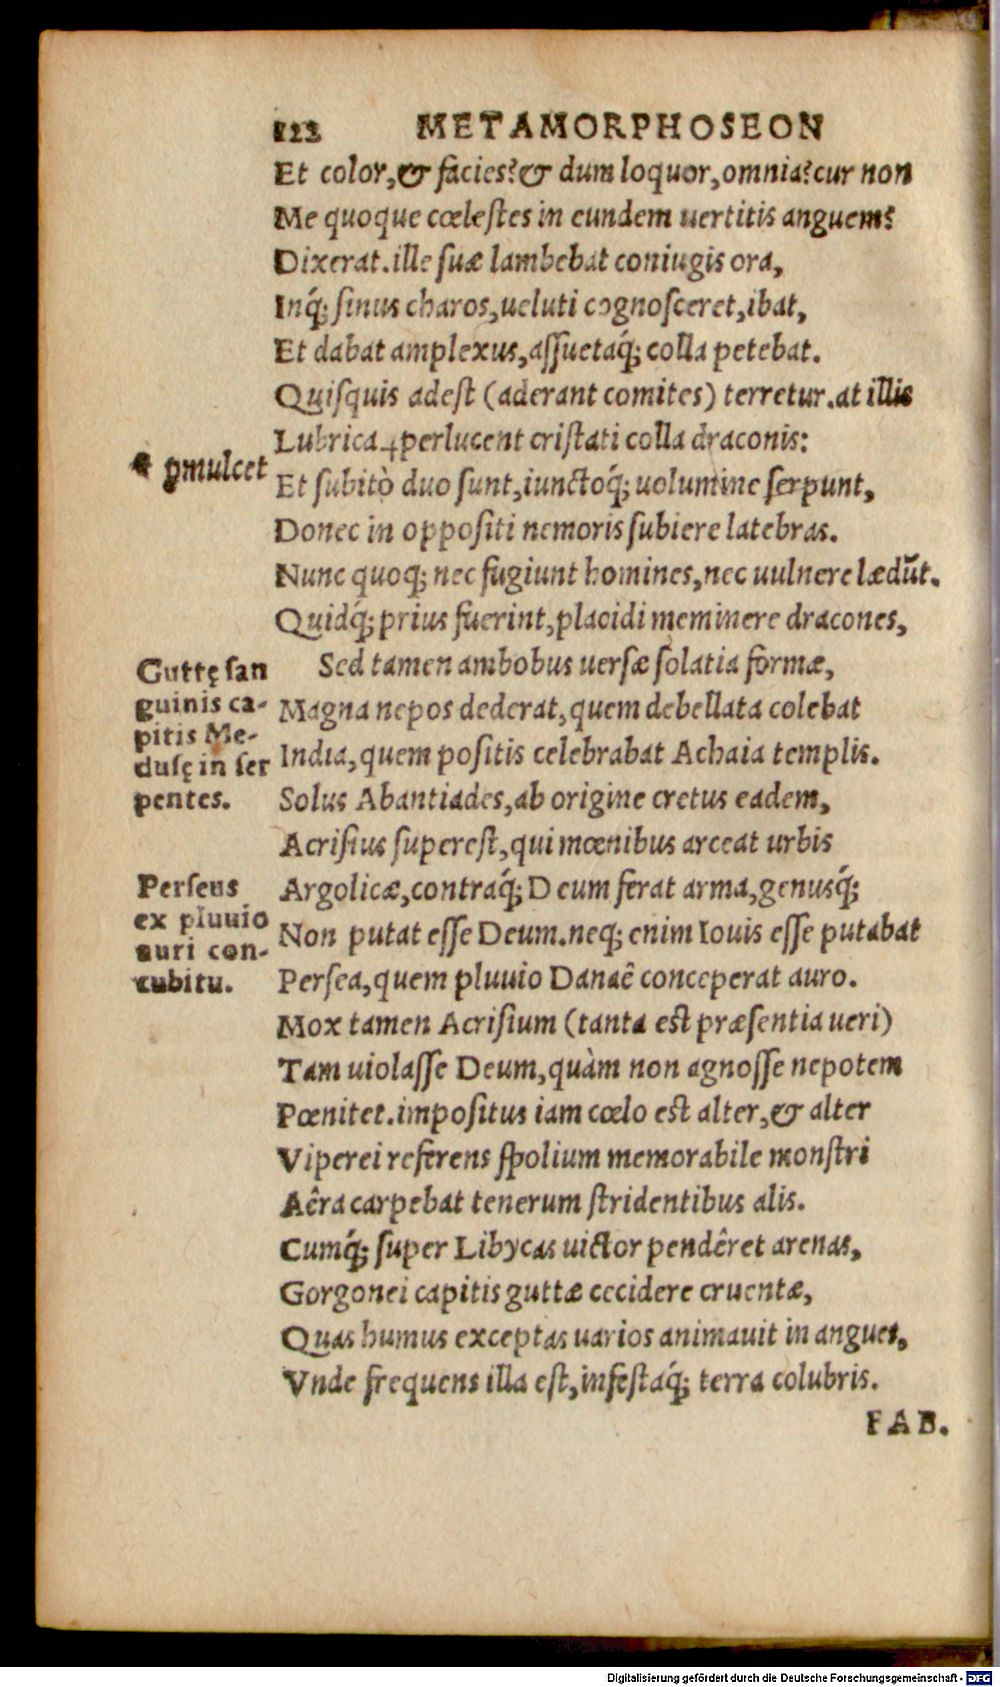 122 METAMORPHOSEON
Et color,& facies?& dum loquor,omnia?cur non
Me quoque cœlestes in eundem uertitis anguem?
Dixerat.ille suæ lambebat coniugis ora,
Inq́; sinus charos,ueluti cognosceret,ibat,
Et dabat amplexus,assuetaq́; colla petebat.
Quisquis adest (aderant comites) terretur.at illis
Lubrica perlucent cristati colla draconis:
pmulcet
Et subitò duo sunt,iunctoq́; uolumine serpunt,
Donec in oppositi nemoris subiere latebras.
Nunc quoq; nec fugiunt homines,nec uulnere lædūt.
Quidq́; prius fuerint,placidi meminere dracones,
Guttę san
guinis ca-
pitis Me-
dusę in ser
pentes.
Sed tamen ambobus uersæ solatia formæ,
Magna nepos dederat,quem debellata colebat
India,quem positis celebrabat Achaia templis.
Solus Abantiades,ab origine cretus eadem,
Acrisius superest,qui mœnibus arceat urbis
Perseus
ex pluuio
auri con-
cubitu.
Argolicæ,contraq́; Deum ferat arma,genusq́;
Non putat esse Deum.neq; enim Iouis esse putabat
Persea,quem pluuio Danaê conceperat auro.
Mox tamen Acrisium (tanta est præsentia ueri)
Tam uiolasse Deum,quàm non agnosse nepotem
Pœnitet.impositus iam cœlo est alter,& alter
Viperei referens spolium memorabile monstri
Aêra carpebat tenerum stridentibus alis.
Cumq́; super Libycas uictor pendêret arenas,
Gorgonei capitis guttæ cecidere cruentæ,
Quas humus exceptas uarios animauit in angues,
Vnde frequens illa est,infestaq́; terra colubris.
FAB.
Digitalisierung gefördert durch die Deutsche Forschungsgemeinschaft - DFG